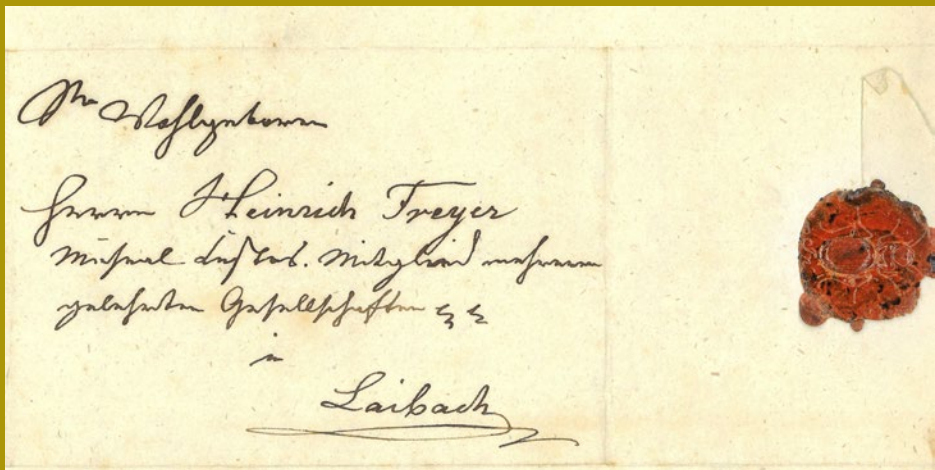 Sr Wohlgeboren
Herrn Heinrich Freyer
Museal Custos. Mitglied mehrerer
gelehrten Gesellschaften
in
Laibach